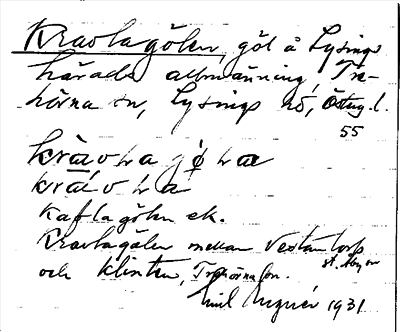 Kravlagölen, göl å Lysings
härads allmänning, Tre-
hörna sn, Lysings hd, Östug.l.
55
kràvɩa gϕɩɩæ
kràvɩa
Kaflagölen ek.
Kravlagölen mellan Vestantorp
och Klinten, Trehörna sn.
Emil 1931